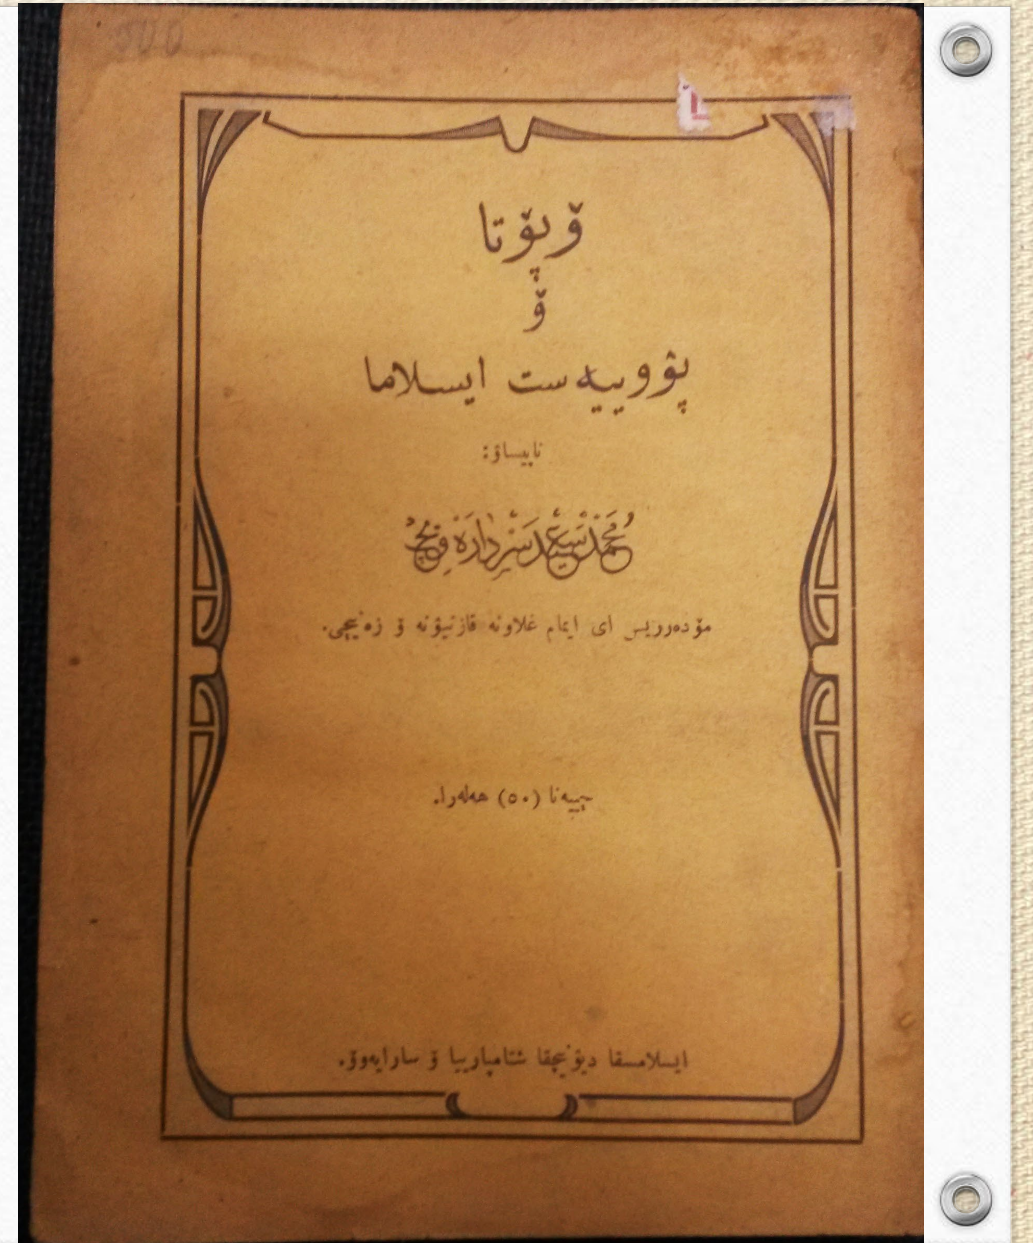 ۆپۆتا
ۆ
پۉوييەست ايسلاما
ناپيساۉ:
مُحَمَّدْ سَعِيدْ سَرْدَارَەوِيچْ
مۆدەرريس اى ايمام غلاونە قازنيۉنە ۆ زەنيڄى.
ڄييەنا (٥٠) هەلەرا.
ايسلامسقا ديۉنيچقا شتامپارييا ۆ سارايەوۉ.